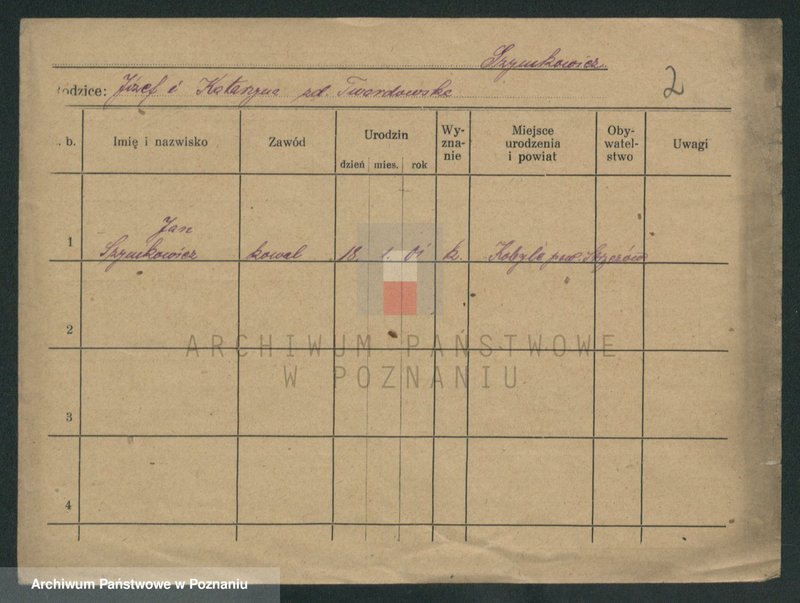 Szymkowicz
odzice: Józef i Katarzyna zd. Twardowska
2
. b. Imię i nazwisko Zawód Urodzin dzień mies. rok Wy-zna-nie Miejsce urodzenia i powiat Oby-watel-stwo Uwagi
Jan
1 Szymkowicz kowal 18. 1. 01 k. Kobyla pow.
2
ARCHIWUM PAŃSTWOWE
W POZNANIU
3
4
Archiwum Państwowe w Poznaniu